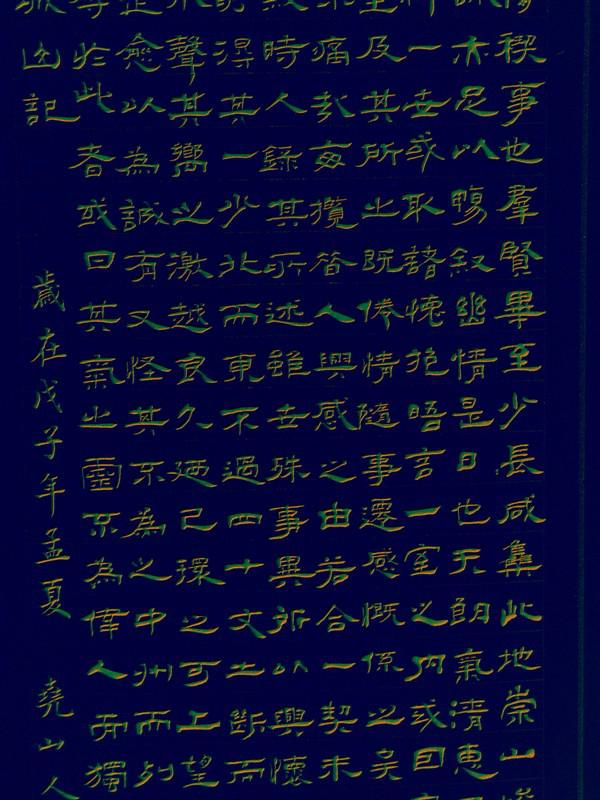 禊事也羣賢畢至少長咸集此地崇山
亦足以暢敘幽情是日也天朗氣清惠
一世或取諸懷抱晤言一室之內或因
及其所之既倦情隨事遷感慨係之矣
痛哉每攬昔人興感之由若合一契未
時人錄其所述雖世殊事異所以興懷
得其一少北而東不過四十丈土斷而
聲其響之激越良久廼已環之可上望
愈以為誠有又怪其不為之中州而列
於此者或曰其氣之靈不為偉人而獨
記
歲在戊子年孟夏 堯山人